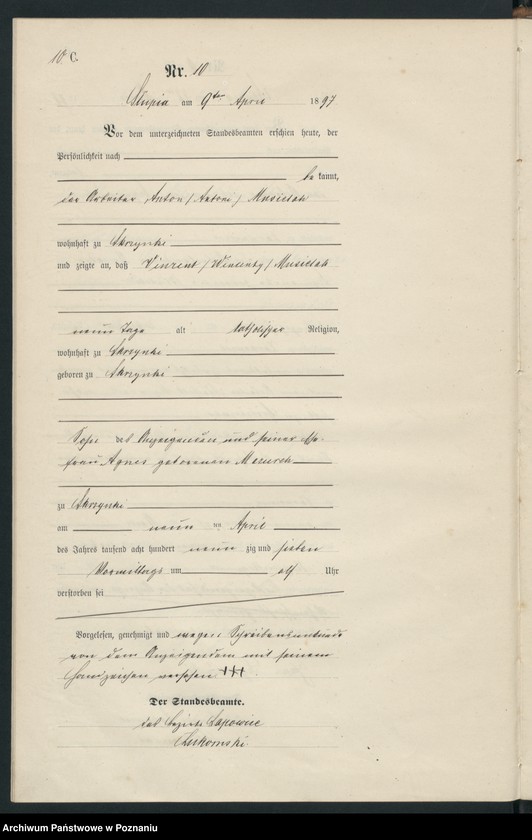 10 C.
Nr. 10
Slupia am 9ten April 1897
Vor dem unterzeichneten Standesbeamten erschien heute, der
Persönlichkeit nach
be kannt,
der Arbeiter Anton /Antoni/ Musielak
wohnhaft zu Skrzynki
und zeigte an, daß Vinzent /Wincenty/ Musielak
neun Tage alt katholischer Religion,
wohnhaft zu Skrzynki
geboren zu Skrzynki
Sohn des Anzeigenden und seiner Ehe-
frau Agnes geborenen
zu Skrzynki
am neun ten April
des Jahres tausend acht hundert neun zig und sieben
Vormittags um elf Uhr
verstorben sei
Vorgelesen, genehmigt und wegen Schreibensunkunde
von dem Anzeigenden mit seinem
Handzeichen versehen. +++
Der Standesbeamte.
des Bezirks
Archiwum Państwowe w Poznaniu